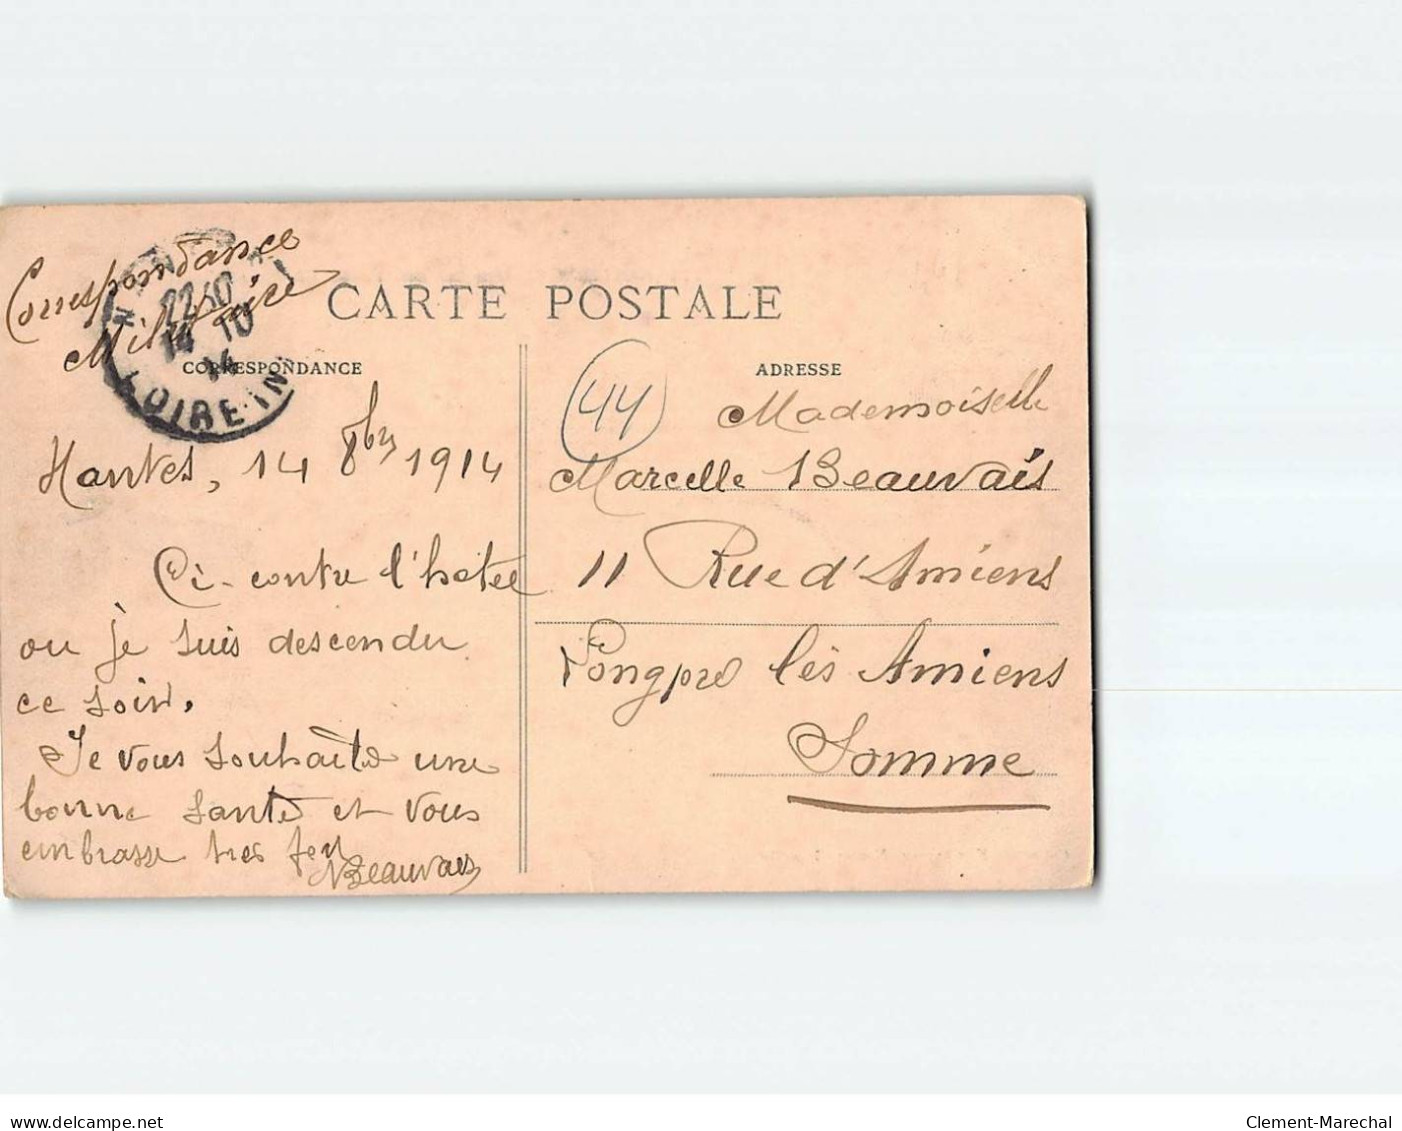 Correspondance
Militaire
NANTES
22 40
14 10
14
LOIRE-IN
CARTE POSTALE
CORRESPONDANCE
ADRESSE
44
Nantes, 14 8bre 1914
Ci-contre l'hôtel
ou je suis descendu
ce soir.
Je vous souhaite une
bonne santé et vous
embrasse très fort
Beauvais
Mademoiselle
Marcelle Beauvais
11 Rue d'Amiens
Longpré lès Amiens
Somme
www.delcampe.net
Clement-Marechal